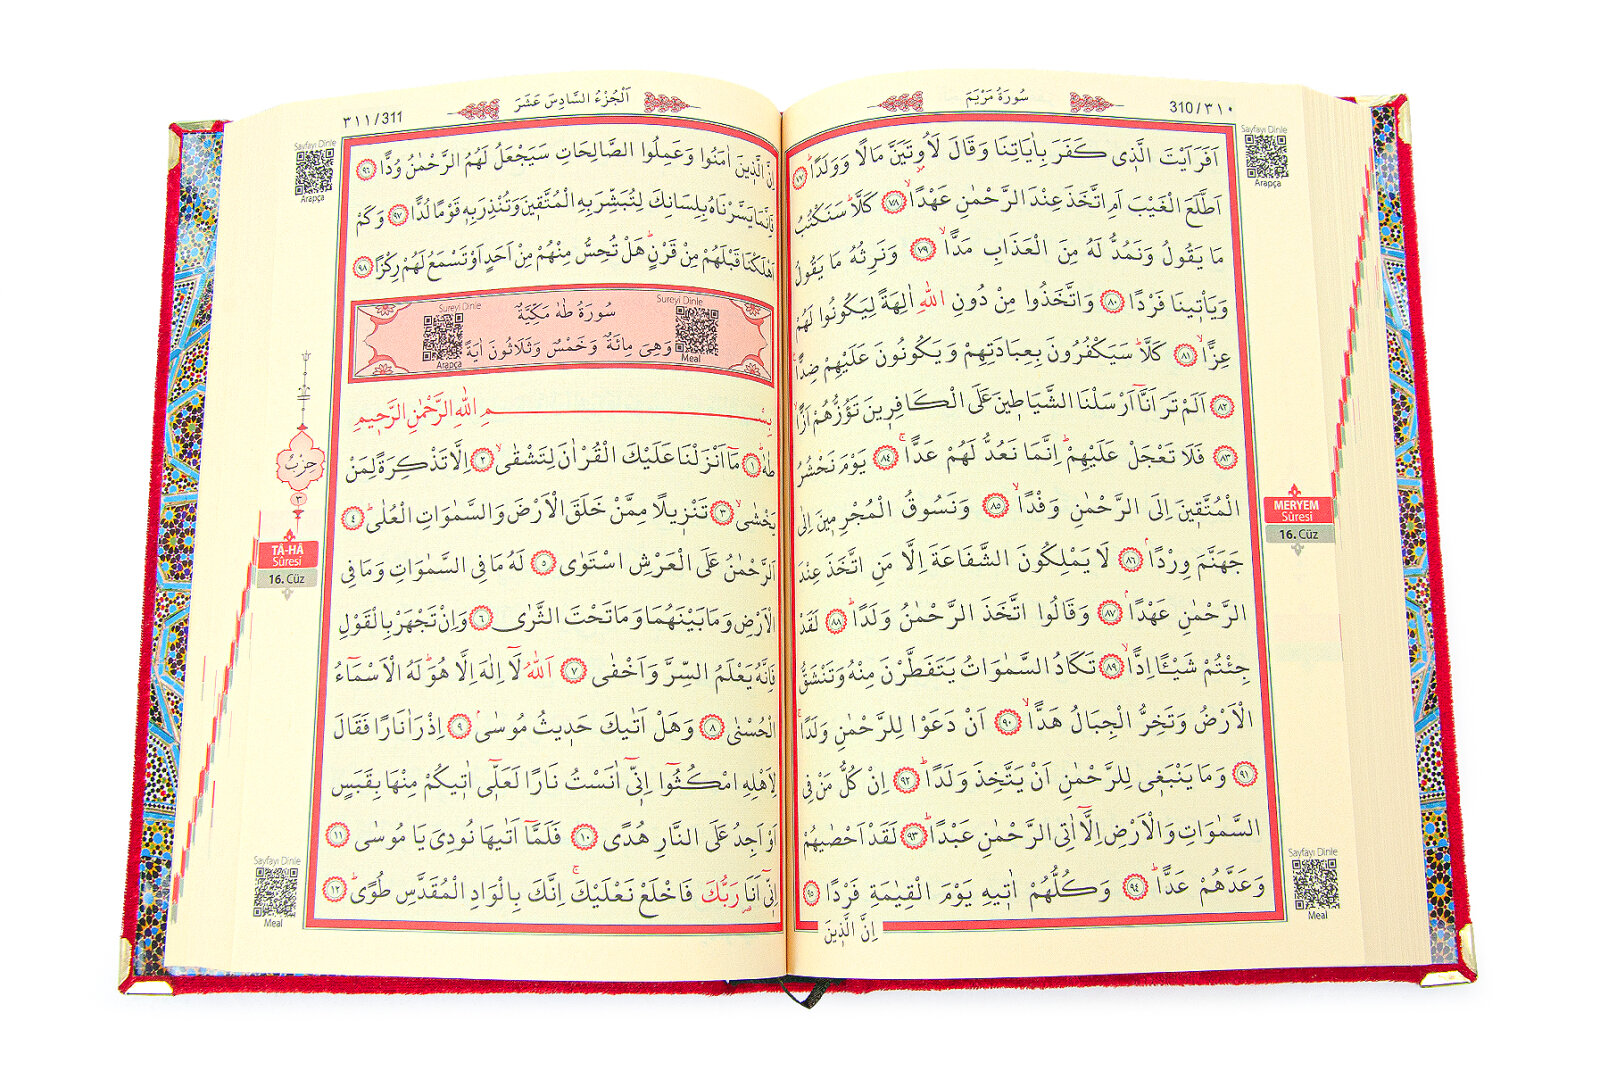 سُورَةُ مَرْيَمَ
310/٣١٠
Sayfayı Dinle
Arapça
اَفَرَاَيْتَ الَّذ۪ي كَفَرَ بِاٰيَاتِنَا وَقَالَ لَاُو۫تَيَنَّ مَالًا وَوَلَدًاۜ ﴿٧٧﴾
اَطَّلَعَ الْغَيْبَ اَمِ اتَّخَذَ عِنْدَ الرَّحْمٰنِ عَهْدًاۙ ﴿٧٨﴾ كَلَّاۜ سَنَكْتُبُ
مَا يَقُولُ وَنَمُدُّ لَهُ مِنَ الْعَذَابِ مَدًّاۙ ﴿٧٩﴾ وَنَرِثُهُ مَا يَقُولُ
وَيَأْت۪ينَا فَرْدًا ﴿٨٠﴾ وَاتَّخَذُوا مِنْ دُونِ اللّٰهِ اٰلِهَةً لِيَكُونُوا لَهُمْ
عِزًّاۙ ﴿٨١﴾ كَلَّاۜ سَيَكْفُرُونَ بِعِبَادَتِهِمْ وَيَكُونُونَ عَلَيْهِمْ ضِدًّا۟
﴿٨٢﴾ اَلَمْ تَرَ اَنَّٓا اَرْسَلْنَا الشَّيَاط۪ينَ عَلَى الْكَافِر۪ينَ تَؤُزُّهُمْ اَزًّاۙ
﴿٨٣﴾ فَلَا تَعْجَلْ عَلَيْهِمْۜ اِنَّمَا نَعُدُّ لَهُمْ عَدًّاۚ ﴿٨٤﴾ يَوْمَ نَحْشُرُ
الْمُتَّق۪ينَ اِلَى الرَّحْمٰنِ وَفْدًاۙ ﴿٨٥﴾ وَنَسُوقُ الْمُجْرِم۪ينَ اِلٰى
جَهَنَّمَ وِرْدًاۢ ﴿٨٦﴾ لَا يَمْلِكُونَ الشَّفَاعَةَ اِلَّا مَنِ اتَّخَذَ عِنْدَ
الرَّحْمٰنِ عَهْدًاۢ ﴿٨٧﴾ وَقَالُوا اتَّخَذَ الرَّحْمٰنُ وَلَدًاۜ ﴿٨٨﴾ لَقَدْ
جِئْتُمْ شَيْـًٔا اِدًّاۙ ﴿٨٩﴾ تَكَادُ السَّمٰوَاتُ يَتَفَطَّرْنَ مِنْهُ وَتَنْشَقُّ
الْاَرْضُ وَتَخِرُّ الْجِبَالُ هَدًّاۙ ﴿٩٠﴾ اَنْ دَعَوْا لِلرَّحْمٰنِ وَلَدًاۚ
﴿٩١﴾ وَمَا يَنْبَغ۪ي لِلرَّحْمٰنِ اَنْ يَتَّخِذَ وَلَدًاۜ ﴿٩٢﴾ اِنْ كُلُّ مَنْ فِي
السَّمٰوَاتِ وَالْاَرْضِ اِلَّٓا اٰتِي الرَّحْمٰنِ عَبْدًاۜ ﴿٩٣﴾ لَقَدْ اَحْصٰيهُمْ
وَعَدَّهُمْ عَدًّاۜ ﴿٩٤﴾ وَكُلُّهُمْ اٰت۪يهِ يَوْمَ الْقِيٰمَةِ فَرْدًا ﴿٩٥﴾
اِنَّ الَّذ۪ينَ
MERYEM
Sûresi
16. Cüz
Sayfayı Dinle
Meal
اَلْجُزْءُ السَّادِسَ عَشَرَ
٣١١/311
Sayfayı Dinle
Arapça
اِنَّ الَّذ۪ينَ اٰمَنُوا وَعَمِلُوا الصَّالِحَاتِ سَيَجْعَلُ لَهُمُ الرَّحْمٰنُ وُدًّا ﴿٩٦﴾
فَاِنَّمَا يَسَّرْنَاهُ بِلِسَانِكَ لِتُبَشِّرَ بِهِ الْمُتَّق۪ينَ وَتُنْذِرَ بِه۪ قَوْمًا لُدًّا ﴿٩٧﴾ وَكَمْ
اَهْلَكْنَا قَبْلَهُمْ مِنْ قَرْنٍۜ هَلْ تُحِسُّ مِنْهُمْ مِنْ اَحَدٍ اَوْ تَسْمَعُ لَهُمْ رِكْزًا ﴿٩٨﴾
سُورَةُ طٰهٰ مَكِّيَّةٌ
وَهِيَ مِائَةٌ وَخَمْسٌ وَثَلَاثُونَ اٰيَةً
Sureyi Dinle
Meal
Sureyi Dinle
Arapça
بِسْمِ اللّٰهِ الرَّحْمٰنِ الرَّح۪يمِ
طٰهٰۜ ﴿١﴾ مَٓا اَنْزَلْنَا عَلَيْكَ الْقُرْاٰنَ لِتَشْقٰىۙ ﴿٢﴾ اِلَّا تَذْكِرَةً لِمَنْ
يَخْشٰىۙ ﴿٣﴾ تَنْز۪يلًا مِمَّنْ خَلَقَ الْاَرْضَ وَالسَّمٰوَاتِ الْعُلٰىۜ ﴿٤﴾
اَلرَّحْمٰنُ عَلَى الْعَرْشِ اسْتَوٰى ﴿٥﴾ لَهُ مَا فِي السَّمٰوَاتِ وَمَا فِي
الْاَرْضِ وَمَا بَيْنَهُمَا وَمَا تَحْتَ الثَّرٰى ﴿٦﴾ وَاِنْ تَجْهَرْ بِالْقَوْلِ
فَاِنَّهُ يَعْلَمُ السِّرَّ وَاَخْفٰى ﴿٧﴾ اَللّٰهُ لَٓا اِلٰهَ اِلَّا هُوَۜ لَهُ الْاَسْمَٓاءُ
الْحُسْنٰى ﴿٨﴾ وَهَلْ اَتٰيكَ حَد۪يثُ مُوسٰىۢ ﴿٩﴾ اِذْ رَاٰ نَارًا فَقَالَ
لِاَهْلِهِ امْكُثُٓوا اِنّ۪ٓي اٰنَسْتُ نَارًا لَعَلّ۪ٓي اٰت۪يكُمْ مِنْهَا بِقَبَسٍ
اَوْ اَجِدُ عَلَى النَّارِ هُدًى ﴿١٠﴾ فَلَمَّٓا اَتٰيهَا نُودِيَ يَا مُوسٰى ﴿١١﴾
اِنّ۪ٓي اَنَا۬ رَبُّكَ فَاخْلَعْ نَعْلَيْكَۚ اِنَّكَ بِالْوَادِ الْمُقَدَّسِ طُوًىۜ ﴿١٢﴾
حِزْبٌ
٣
TÂ-HÂ
Sûresi
16. Cüz
Sayfayı Dinle
Meal